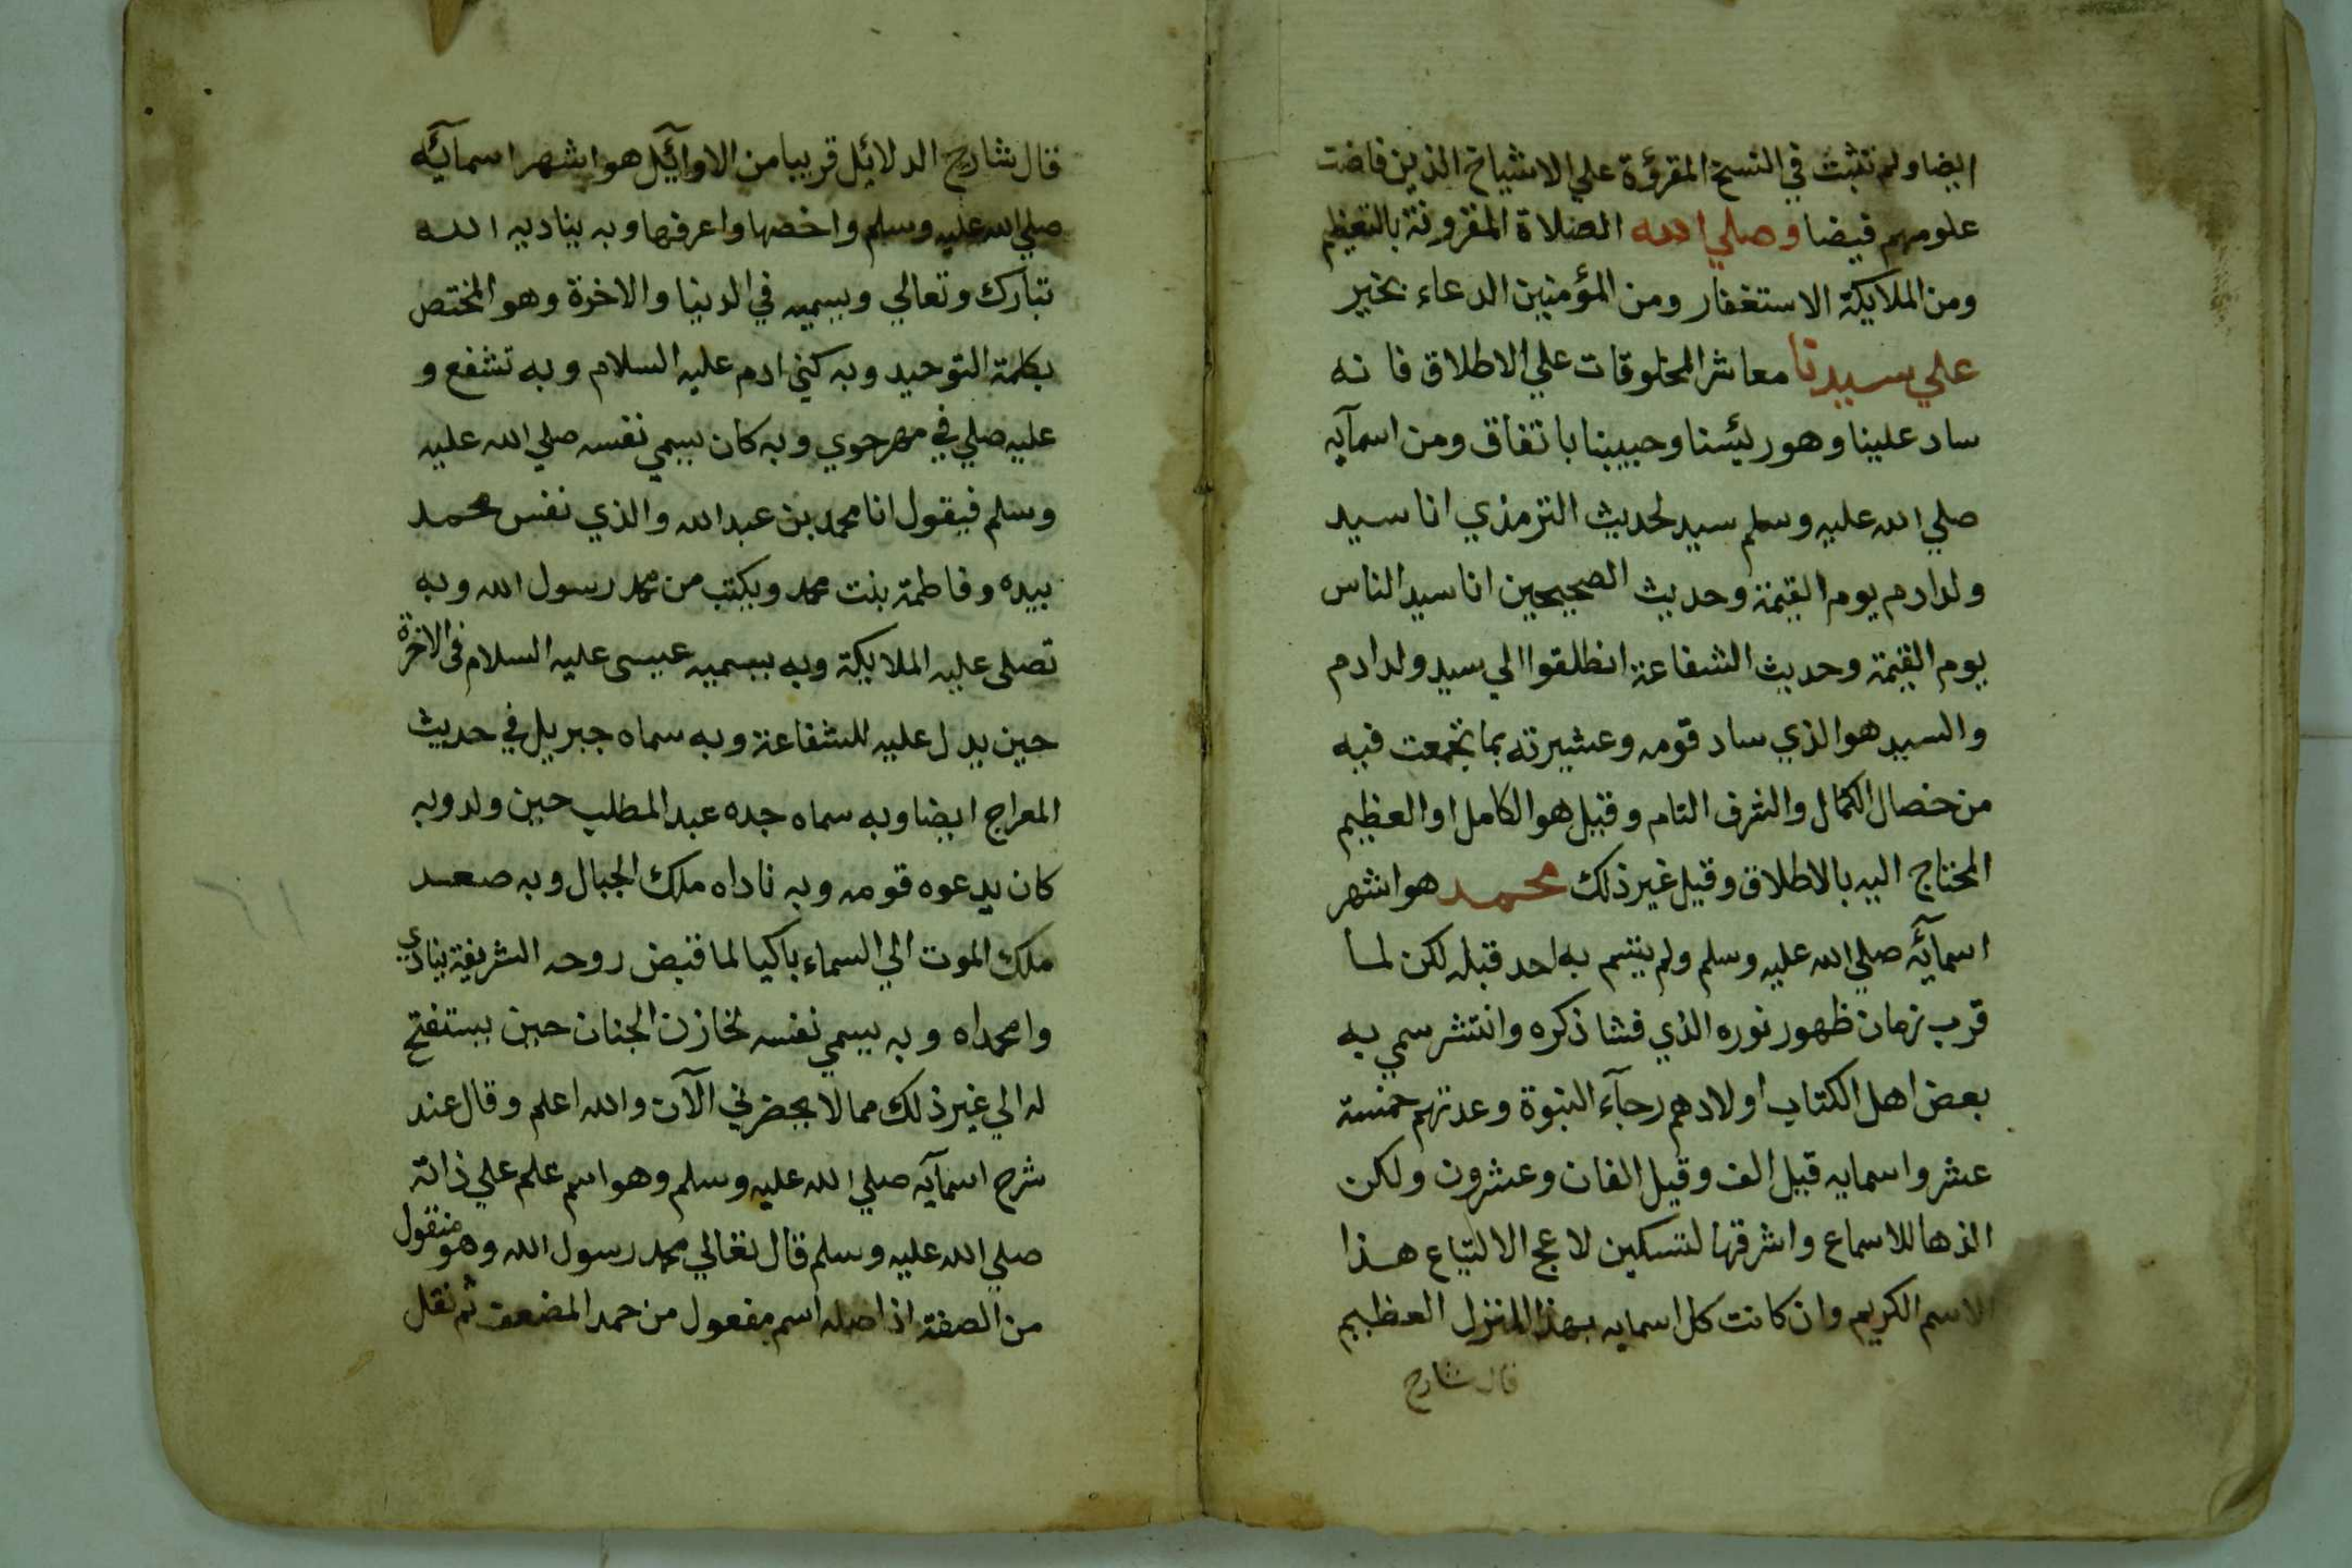 ايضا ولم تثبت في النسخ المقرؤة علي الاشياخ الذين فاضت
علومهم فيضا وصلي الله الصلاة المقرونة بالتعظيم
ومن الملايكة الاستغفار ومن المؤمنين الدعاء بخير
علي سيدنا معاشر المخلوقات علي الاطلاق فانه
ساد علينا وهو ريئسنا وحبيبنا باتفاق ومن اسمآيه
صلي الله عليه وسلم سيد لحديث الترمذي انا سيد
ولد ادم يوم القيمة وحديث الصحيحين انا سيد الناس
يوم القيمة وحديث الشفاعة انطلقوا الي سيد ولد ادم
والسيد هو الذي ساد قومه وعشيرته بما تجمعت فيه
من خصال الكمال والشرف التام وقيل هو الكامل او العظيم
المحتاج اليه بالاطلاق وقيل غير ذلك محمد هو اشهر
اسمآئه صلي الله عليه وسلم ولم يتسم به احد قبله لكن لما
قرب زمان ظهور نوره الذي فشا ذكره وانتشر سمي به
بعض اهل الكتاب اولادهم رجآء النبوة وعدتهم خمسة
عشر واسمايه قيل الف وقيل الفان وعشرون ولكن
الذها للاسماع واشرقها لتسكين لاعج الالتياع هذا
الاسم الكريم وان كانت كل اسمايه بهذا المنزل العظيم
قال شارح
قال شارح الدلائل قريبا من الاوآئل هو اشهر اسمآئه
صلي الله عليه وسلم واخصها واعرفها وبه يناديه الله
تبارك وتعالي ويسميه في الدنيا والاخرة وهو المختص
بكلمة التوحيد وبه كني ادم عليه السلام وبه تشفع و
عليه صلي في مهر حوي وبه كان يسمي نفسه صلي الله عليه
وسلم فيقول انا محمد بن عبد الله والذي نفس محمد
بيده وفاطمة بنت محمد ويكتب من محمد رسول الله وبه
تصلي عليه الملايكة وبه يسميه عيسى عليه السلام في الاخرة
حين يدل عليه للشفاعة وبه سماه جبريل في حديث
المعراج ايضا وبه سماه جده عبد المطلب حين ولد وبه
كان يدعوه قومه وبه ناداه ملك الجبال وبه صعد
ملك الموت الي السماء باكيا لما قبض روحه الشريفة ينادي
وامحمداه وبه يسمي نفسه لخازن الجنان حين يستفتح
له الي غير ذلك مما لا يحضرني الآن والله اعلم وقال عند
شرح اسمآيه صلي الله عليه وسلم وهو اسم علم علي ذاته
صلي الله عليه وسلم قال تعالي محمد رسول الله وهو منقول
من الصفة اذ اصله اسم مفعول من حمد المضعف ثم نقل